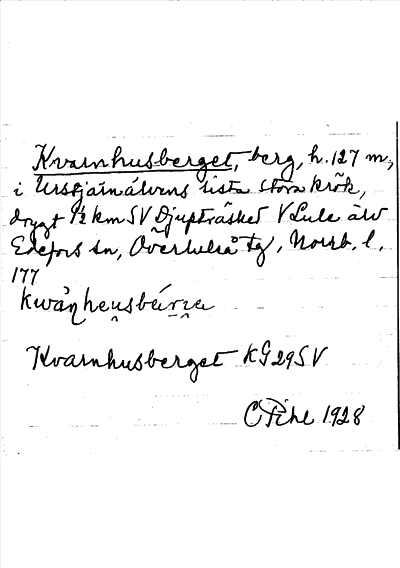 Kvarnhusberget, berg, h. 127 m,
i Urstjärnälvens sista stora krök,
drygt ½ km SV Djupträsket V Lule älv
Edefors sn, Överluleå tg, Norrb. l.
177
Kvarnhusberget KG29SV
C Pihl 1928